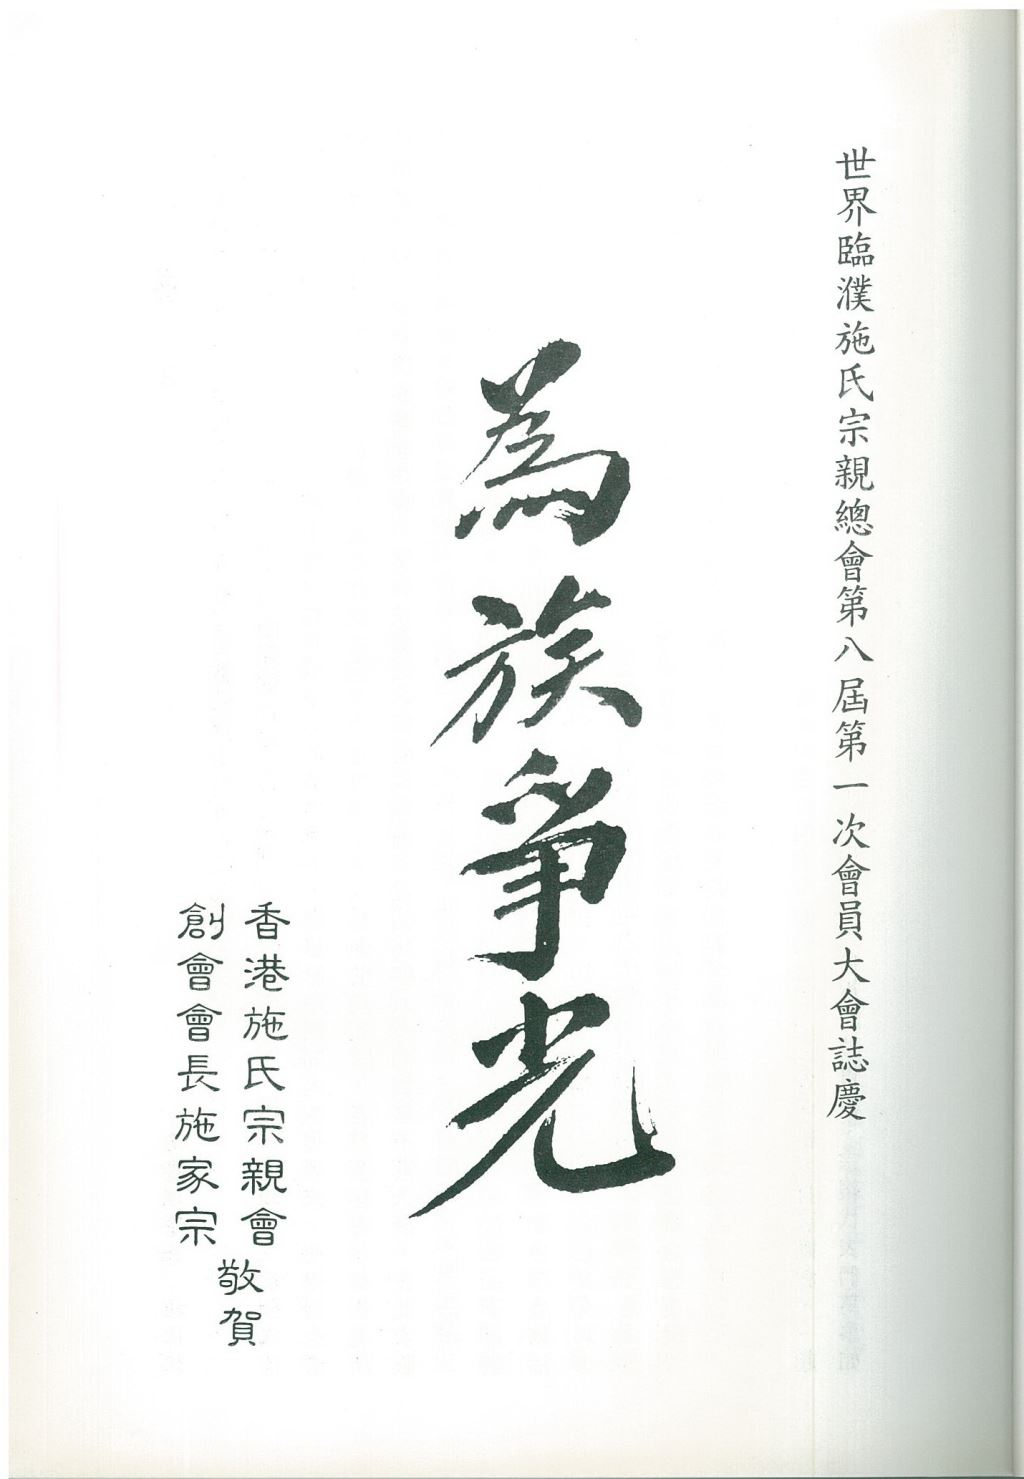 世界臨濮施氏宗親總會第八屆第一次會員大會誌慶
為族爭光
香港施氏宗親會
創會會長施家宗
敬賀